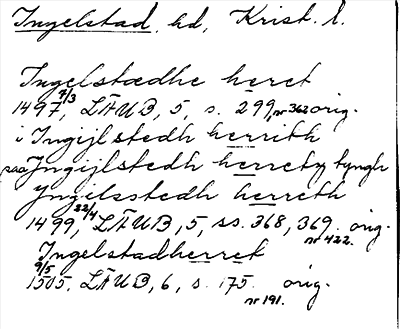 Ingelstad, hd, Krist. l.
Ingelstædhe heret
1497 7/3, LÄUB, 5, s. 299, nr 362 orig.
i Ingijlstedh herreth
paa Jngijlstedh herretz tyngh
Yngilsstedh herreth
1499, 22/4, LÄUB, 5, ss. 368, 369. orig. nr 422.
Ingelstadherret
1505, 9/5, LÄUB, 6, s. 175. orig. nr 191.